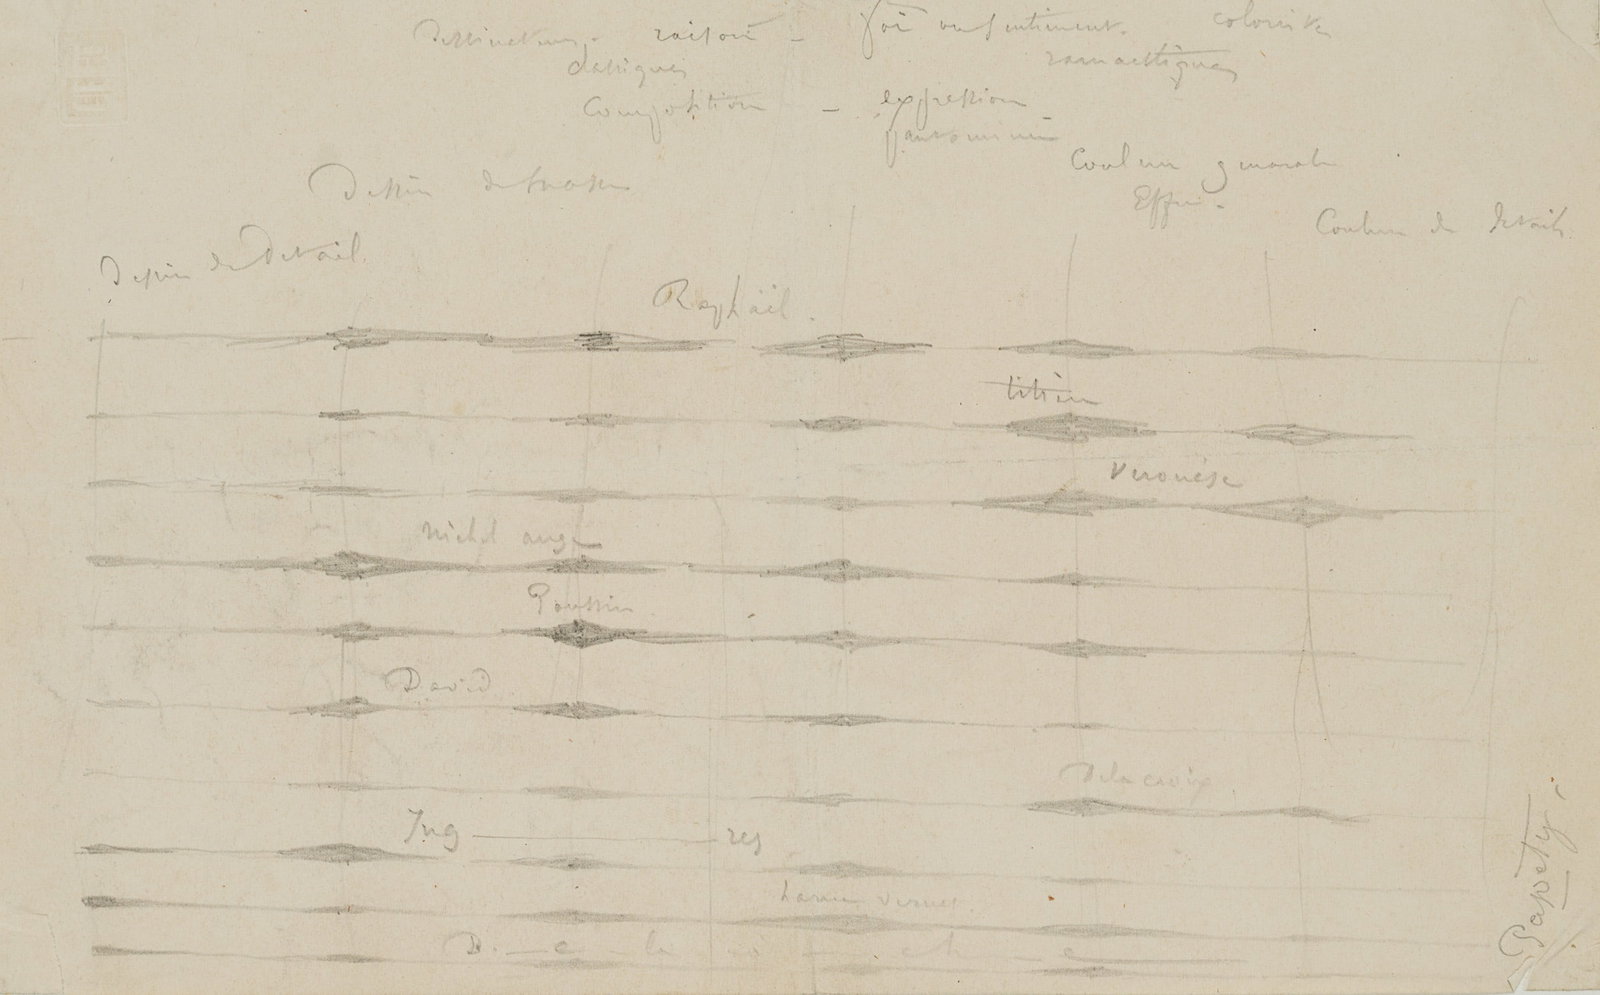 Dessinateurs - raison - foi ou sentiment. coloriste
classiques romantiques
Composition - expression
pantomime
Couleur generale
Dessin de masse
Effet.
Couleur de details
Dessin de Detail
Raphaël.
titien
Veronèse
Michel ange
Poussin
David
Delacroix
Ing res
horace vernet.
D. e la r o ch e
Papety.